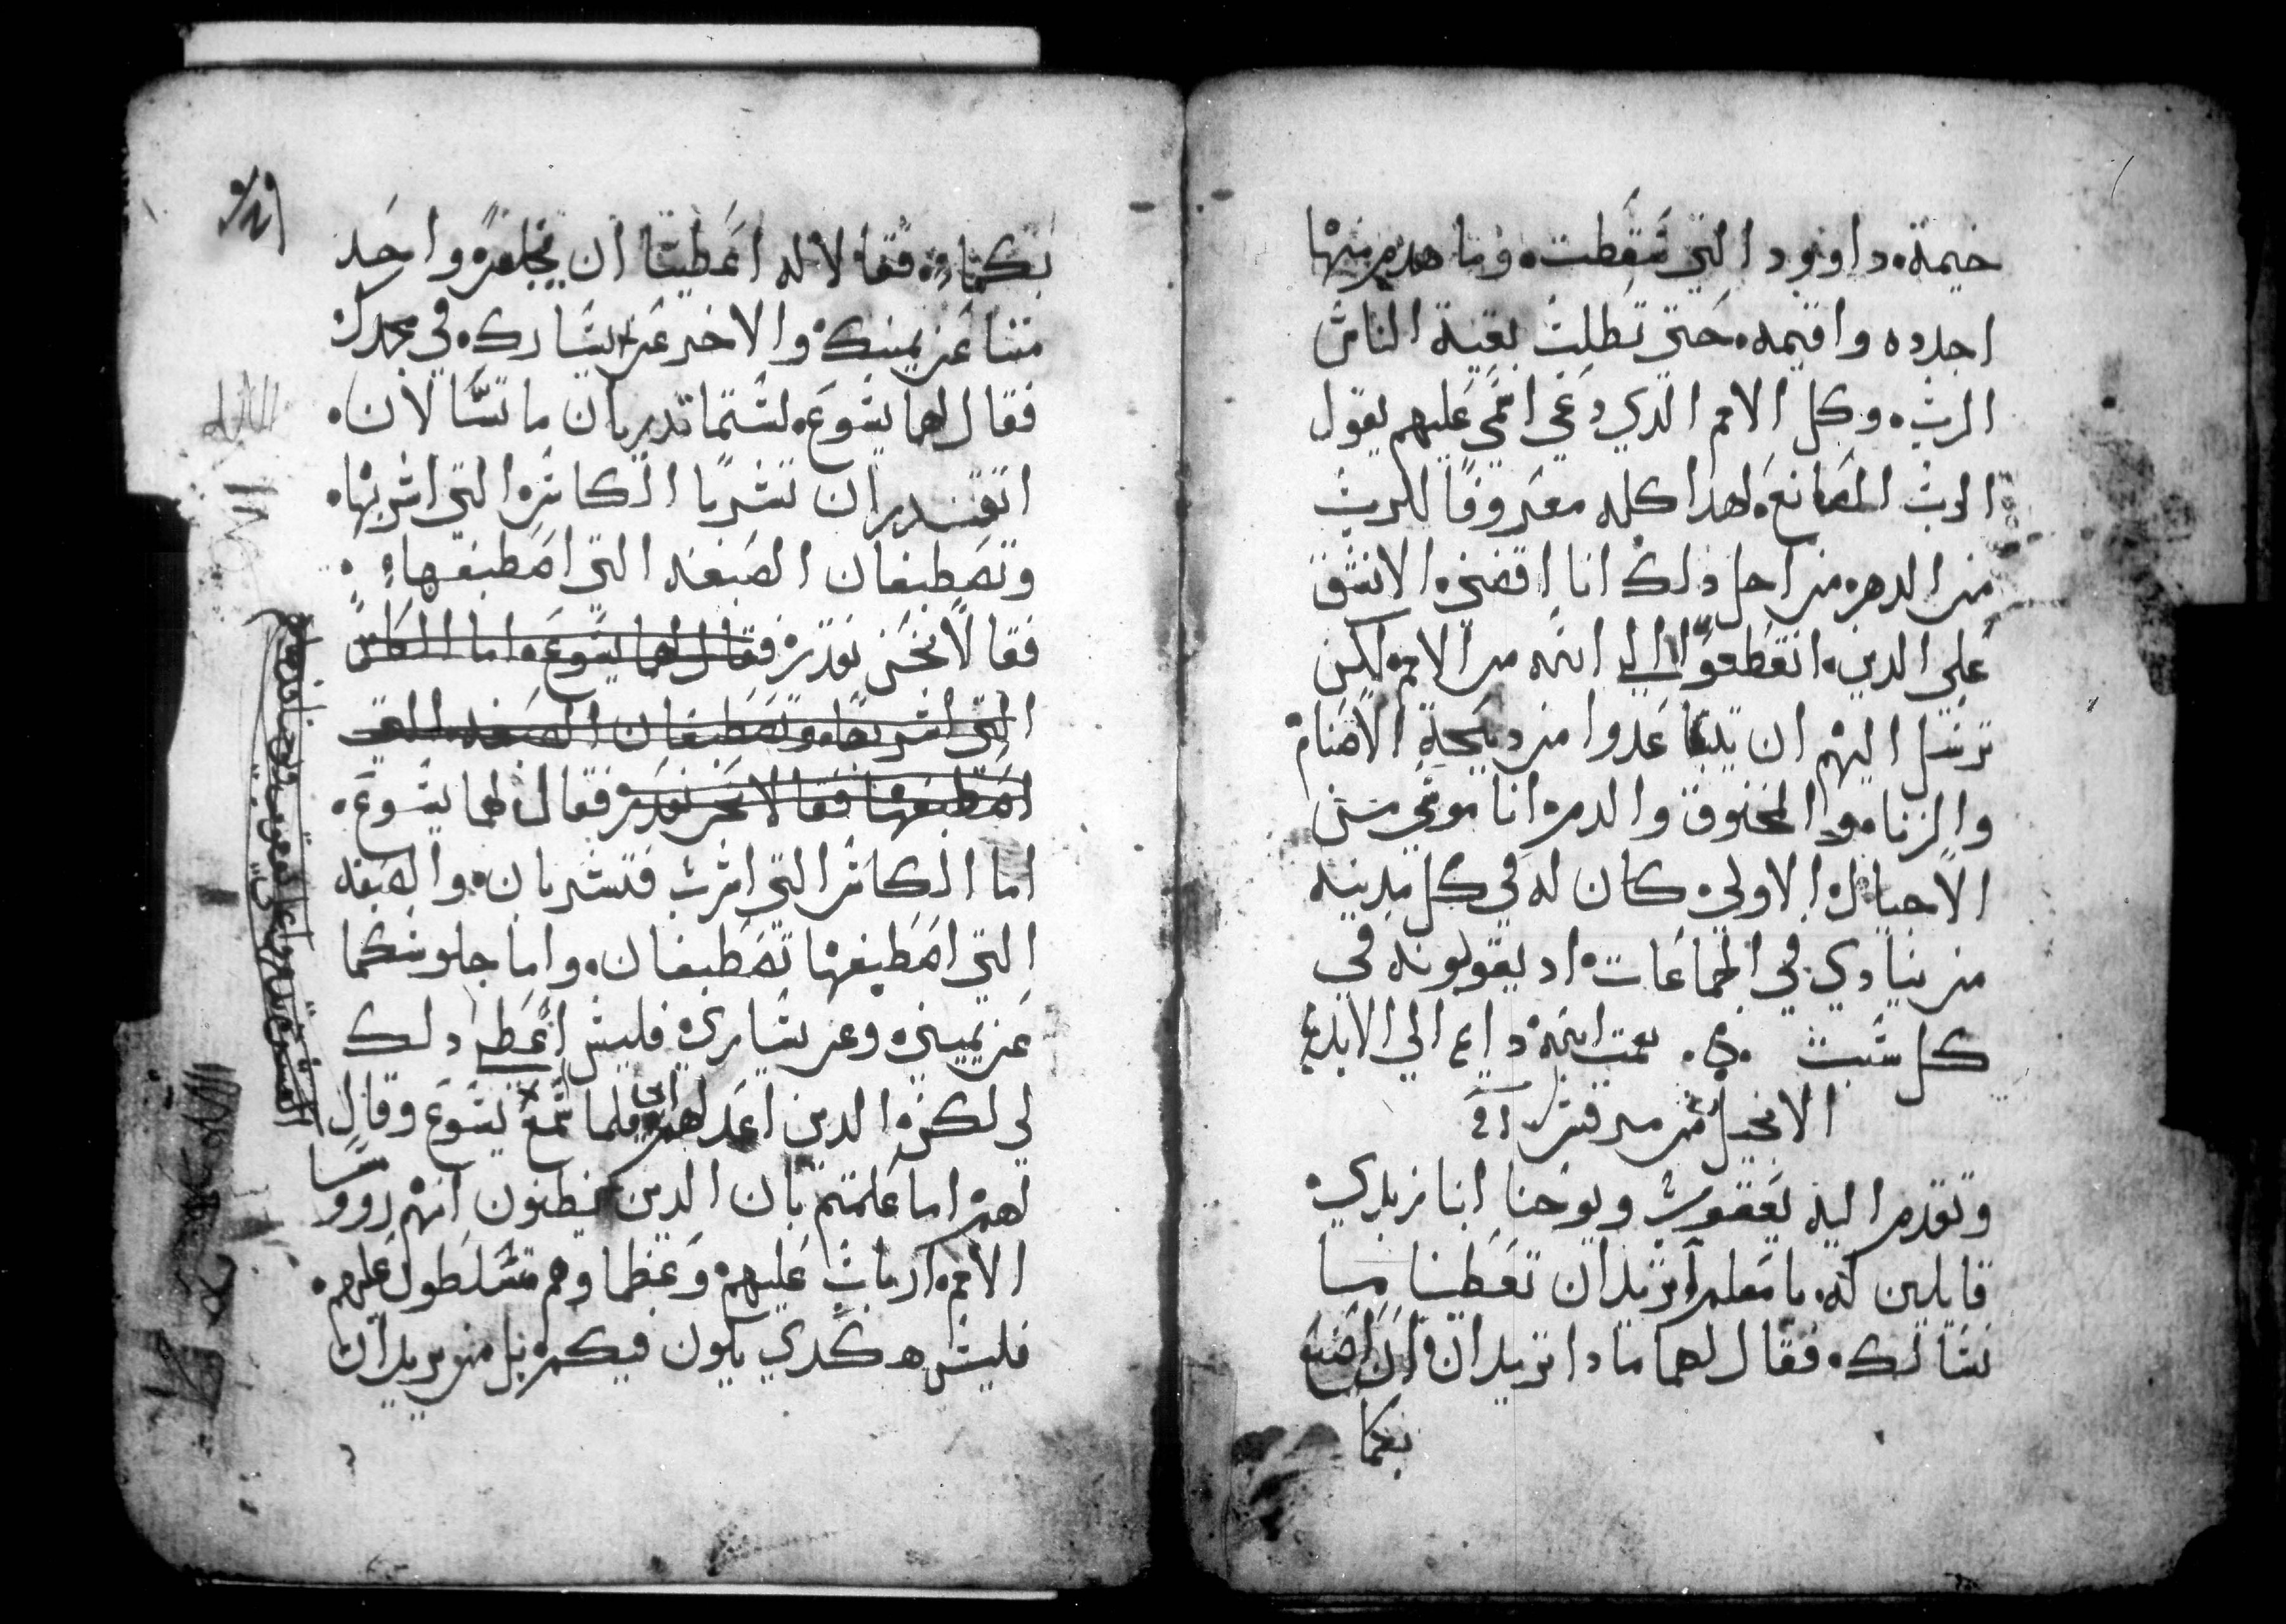 خيمة داوود التي سقطت وما هدم منها
اجدده واقيمه حتي تطلب بقية الناس
الرب وكل الامم الدي دعي اسمي عليهم يقول
الرب الصانع لهدا كله معروفا للرب
من الدهر من اجل دلك انا اقضي الا نشق
علي الدين انقطعوا الي الله من الامم لكن
نرسل اليهم ان يتباعدوا من دبيحة الاصنام
والزنا والمخنوق والدم انا موسي من
الاجيال الاولي كان له في كل مدينه
من ينادي في الجماعات اد يقرونه في
كل سبت نعمت الله داع الي الابد
الانجيل من مرقس
وتقدم اليه يعقوب ويوحنا ابنا زبدي
قايلين له يا معلم نريد ان تعطينا ما
نسالك فقال لهما مادا تريدان ان اصنع
بكما
بكما فقالا له اعطينا ان يجلس واحد
منا عن يمينك والاخر عن يسارك في مجدك
فقال لهما يسوع لستما تدريان ما تسالان
اتقدران تشربا الكاس التي اشربها
وتصطبغان الصبغه التي اصطبغها
فقالا نحن نقدر فقال لهما يسوع اما الكاس
التي اشربها وتصطبغان الصبغه التي
اصطبغها فقالا نحن نقدر فقال لهما يسوع
اما الكاس التي اشرب فتشربان والصبغه
التي اصطبغها تصطبغان واما جلوسكما
عن يميني وعن يساري فليس اعطا دلك
لي لكن الدين اعد لهم فلما سمع يسوع وقال
لهم اما علمتم بان الدين يظنون انهم روسا
الامم ارباب عليهم وعظماوهم متسلطون عليهم
فليس هكدي يكون فيكم بل من يريد ان